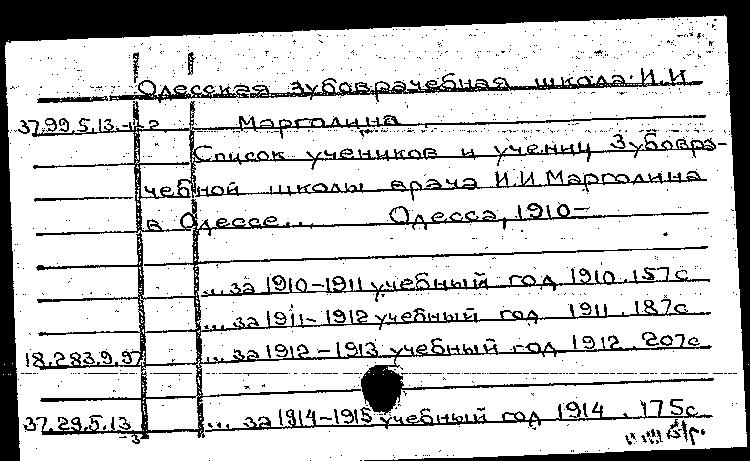 Одесская зубоврачебная школа И.И
37.99.5.13.-1-2 Марголина.
Список учеников и учениц Зубовра-
чебной школы врача И.И.Марголина
в Одессе... Одесса, 1910-
... за 1910-1911 учебный год 1910. 157с
... за 1911-1912 учебный год 1911. 187с
18.283.9.97 ... за 1912-1913 учебный год 1912. 207с
37.29.5.13 ... за 1914-1915 учебный год 1914. 175с
-3